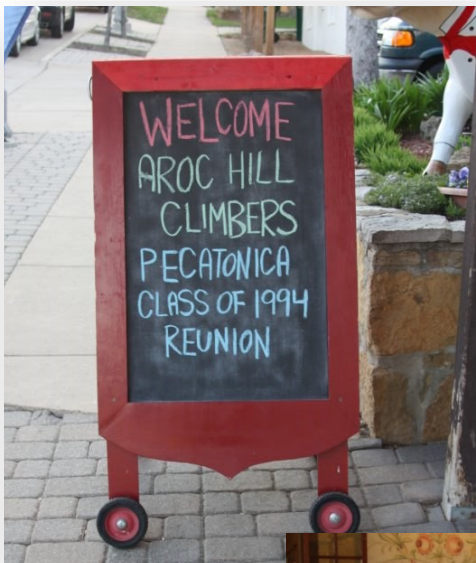 WELCOME
AROC HILL
CLIMBERS
PECATONICA
CLASS OF 1994
REUNION